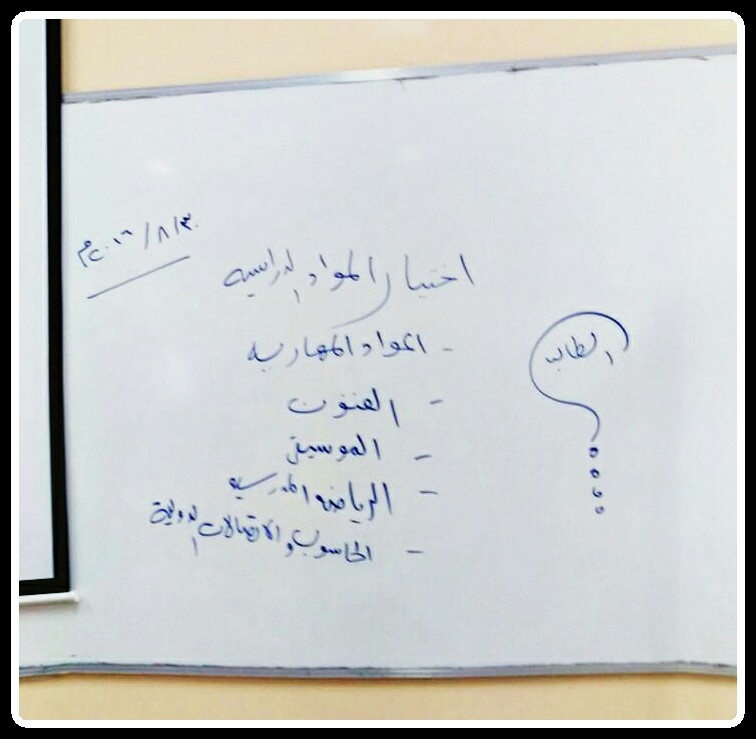 اختيار المواد الدراسية
- المواد المهارية
- الفنون
- الموسيقى
- الرياضة المدرسية
- الحاسوب والاتصالات الدولية
الطالب